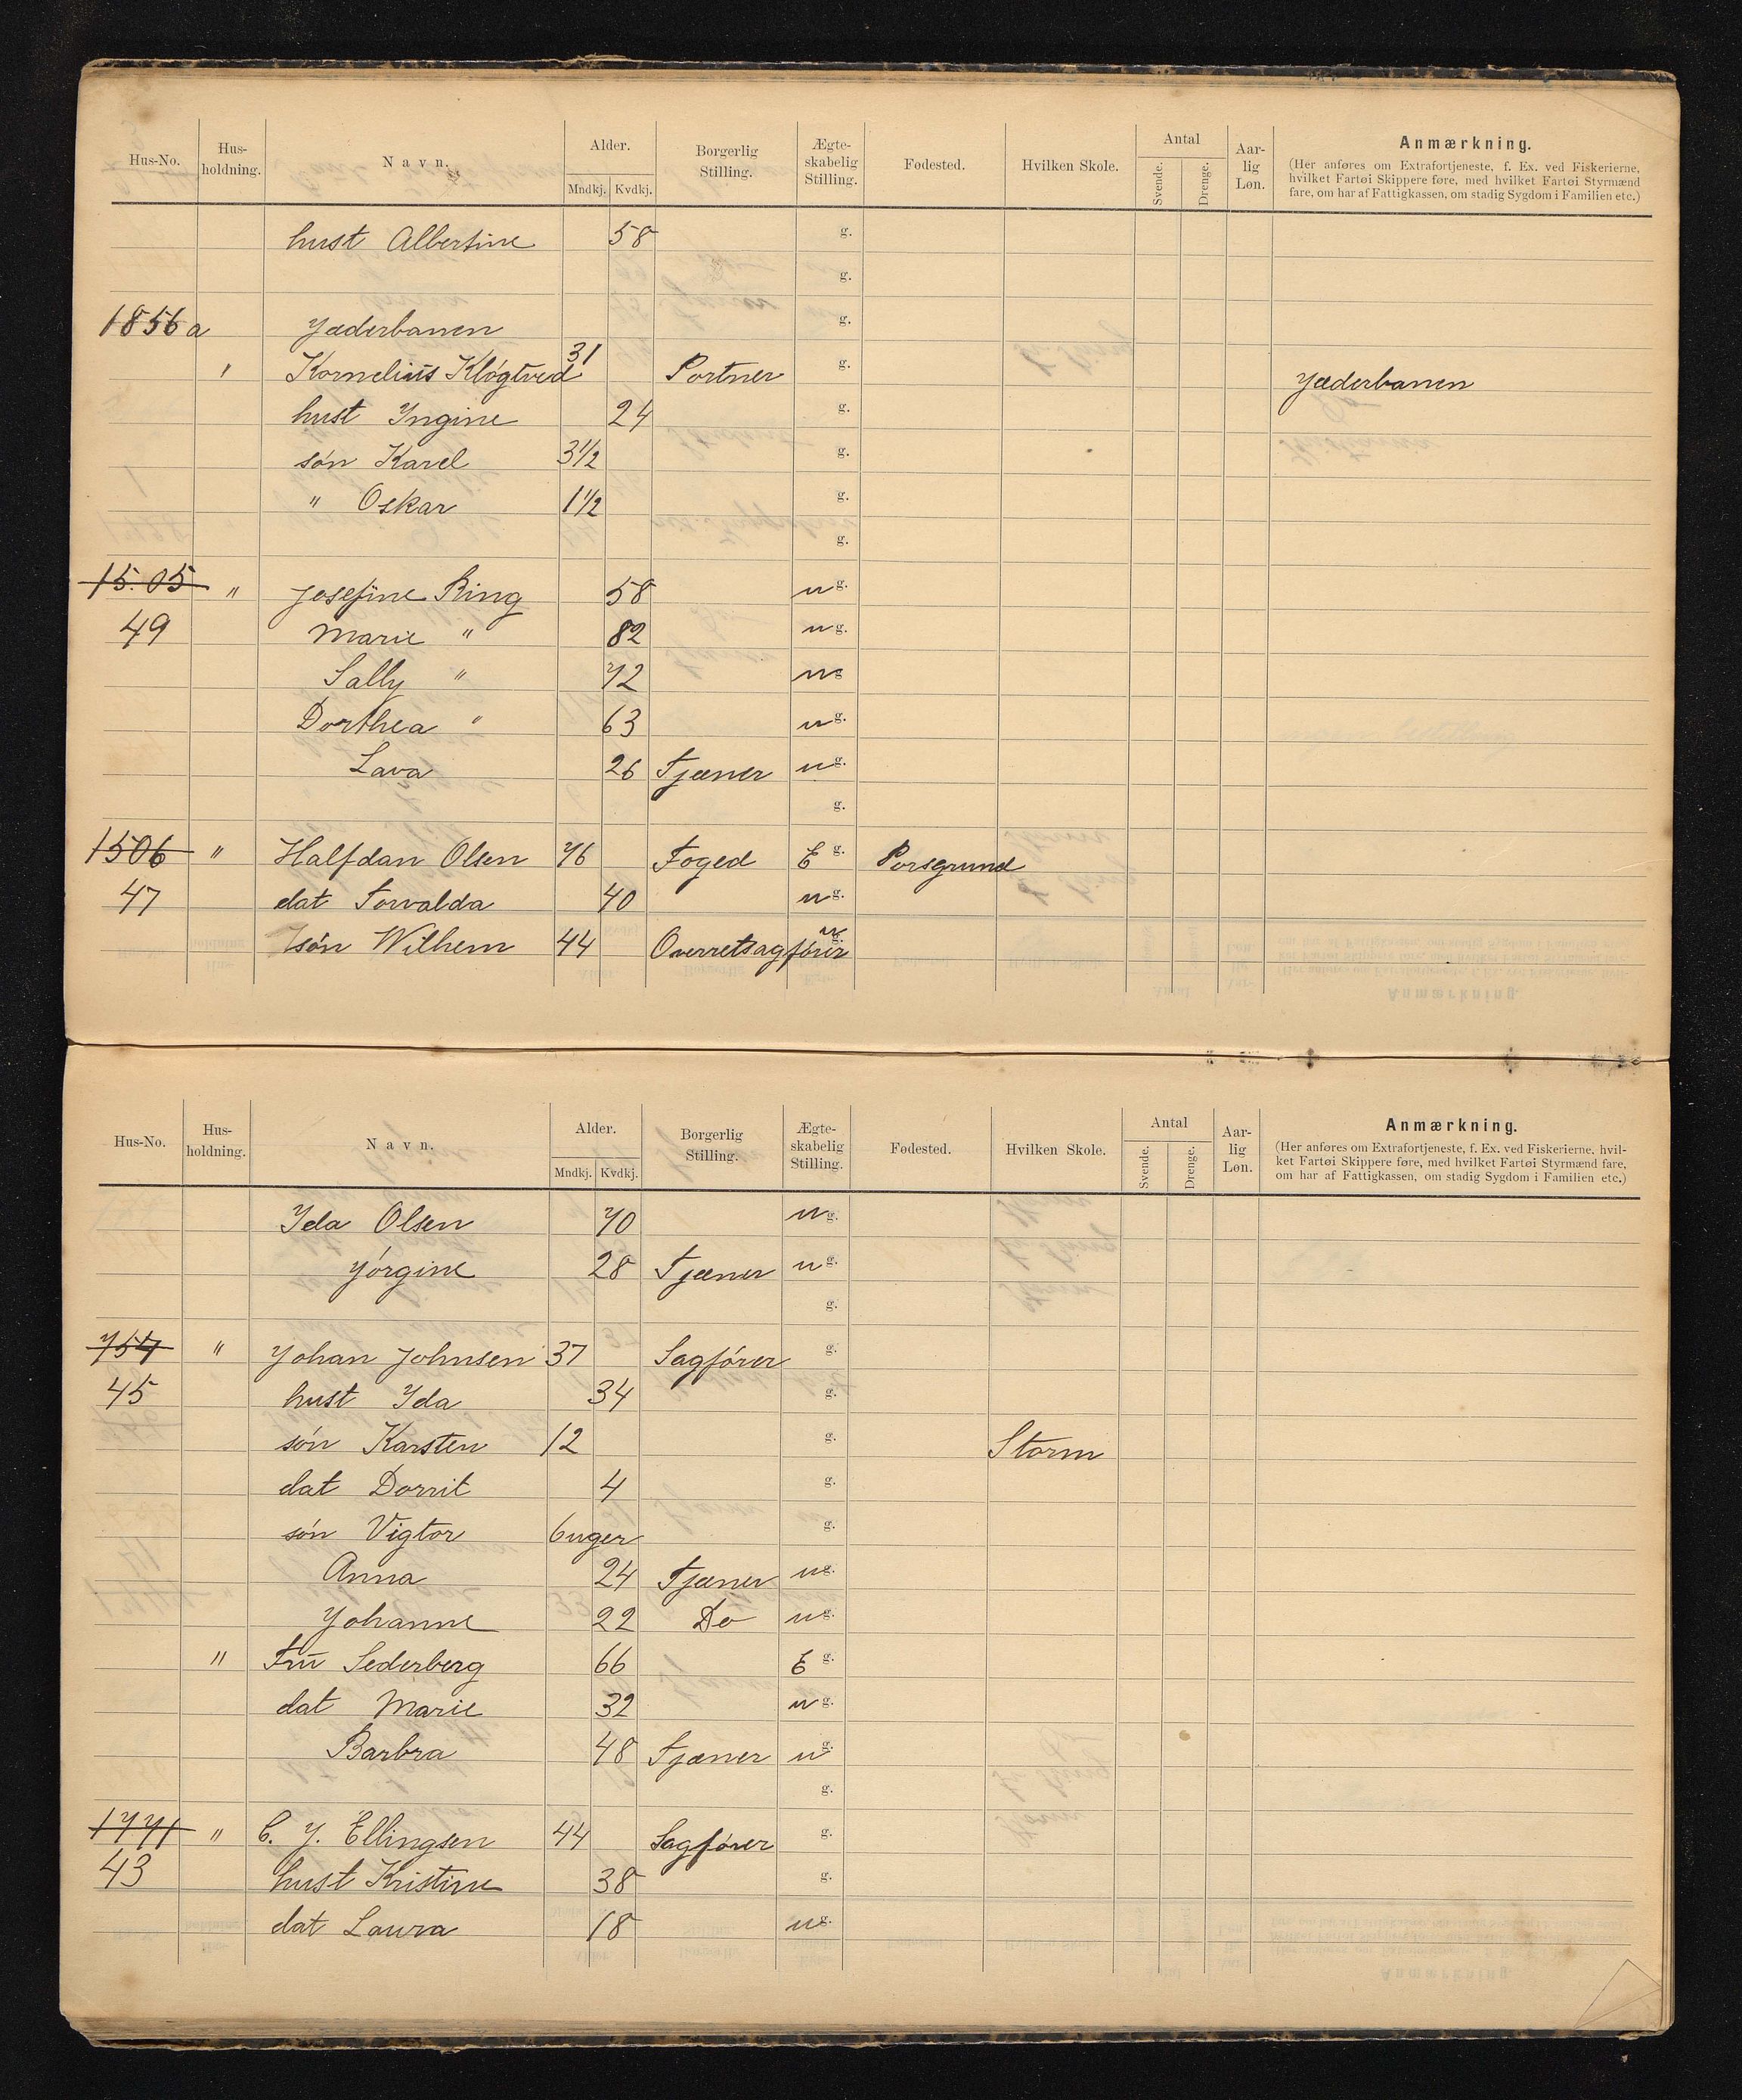 Hus-No. Hus-holdning. Navn. Alder. Mndkj. Kvdkj. Borgerlig Stilling. Ægte-skabelig Stilling. Fødested. Hvilken Skole. Antal Svende. Drenge. Aar-lig Løn. Anmærkning.
(Her anføres om Extrafortjeneste, f. Ex. ved Fiskerierne,
hvilket Fartøi Skippere føre, med hvilket Fartøi Styrmænd
fare, om har af Fattigkassen, om stadig Sygdom i Familien etc.)
hust Albertine 58 g.
g.
1856a Jæderbanen g.
" Kornelius Kløgtved 31 Portner g. Jæderbanen
hust Ingine 24 g.
søn Karel 3½ g.
" Oskar 1½ g.
g.
15.05 " Josefine Ring 58 u g.
49 Marie " 82 u g.
Sally " 72 u g.
Dorthea " 63 u g.
Lava 26 Tjæner u g.
g.
1506 " Halfdan Olsen 76 Foged E g. Porsgrund
47 dat Torvalda 40 u g.
søn Wilhem 44 Overretsagfører u g.
Hus-No. Hus-holdning. Navn. Alder. Mndkj. Kvdkj. Borgerlig Stilling. Ægte-skabelig Stilling. Fødested. Hvilken Skole. Antal Svende. Drenge. Aar-lig Løn. Anmærkning.
(Her anføres om Extrafortjeneste, f. Ex. ved Fiskerierne, hvil-
ket Fartøi Skippere føre, med hvilket Fartøi Styrmænd fare,
om har af Fattigkassen, om stadig Sygdom i Familien etc.)
Ida Olsen 70 u g.
Jörgine 28 Tjæner u g.
g.
754 " Johan Johnsen 37 Sagfører g.
45 hust Ida 34 g.
søn Karsten 12 g. Storm
dat Dorrit 4 g.
søn Vigtor 6 uger g.
Anna 24 Tjæner u g.
Johanne 22 Do u g.
" Fru Sederberg 66 E g.
dat Marie 32 u g.
Barbra 48 Tjæner u g.
g.
1771 " C. J. Ellingsen 44 Sagfører g.
43 hust Kristine 38 g.
dat Laura 18 u g.